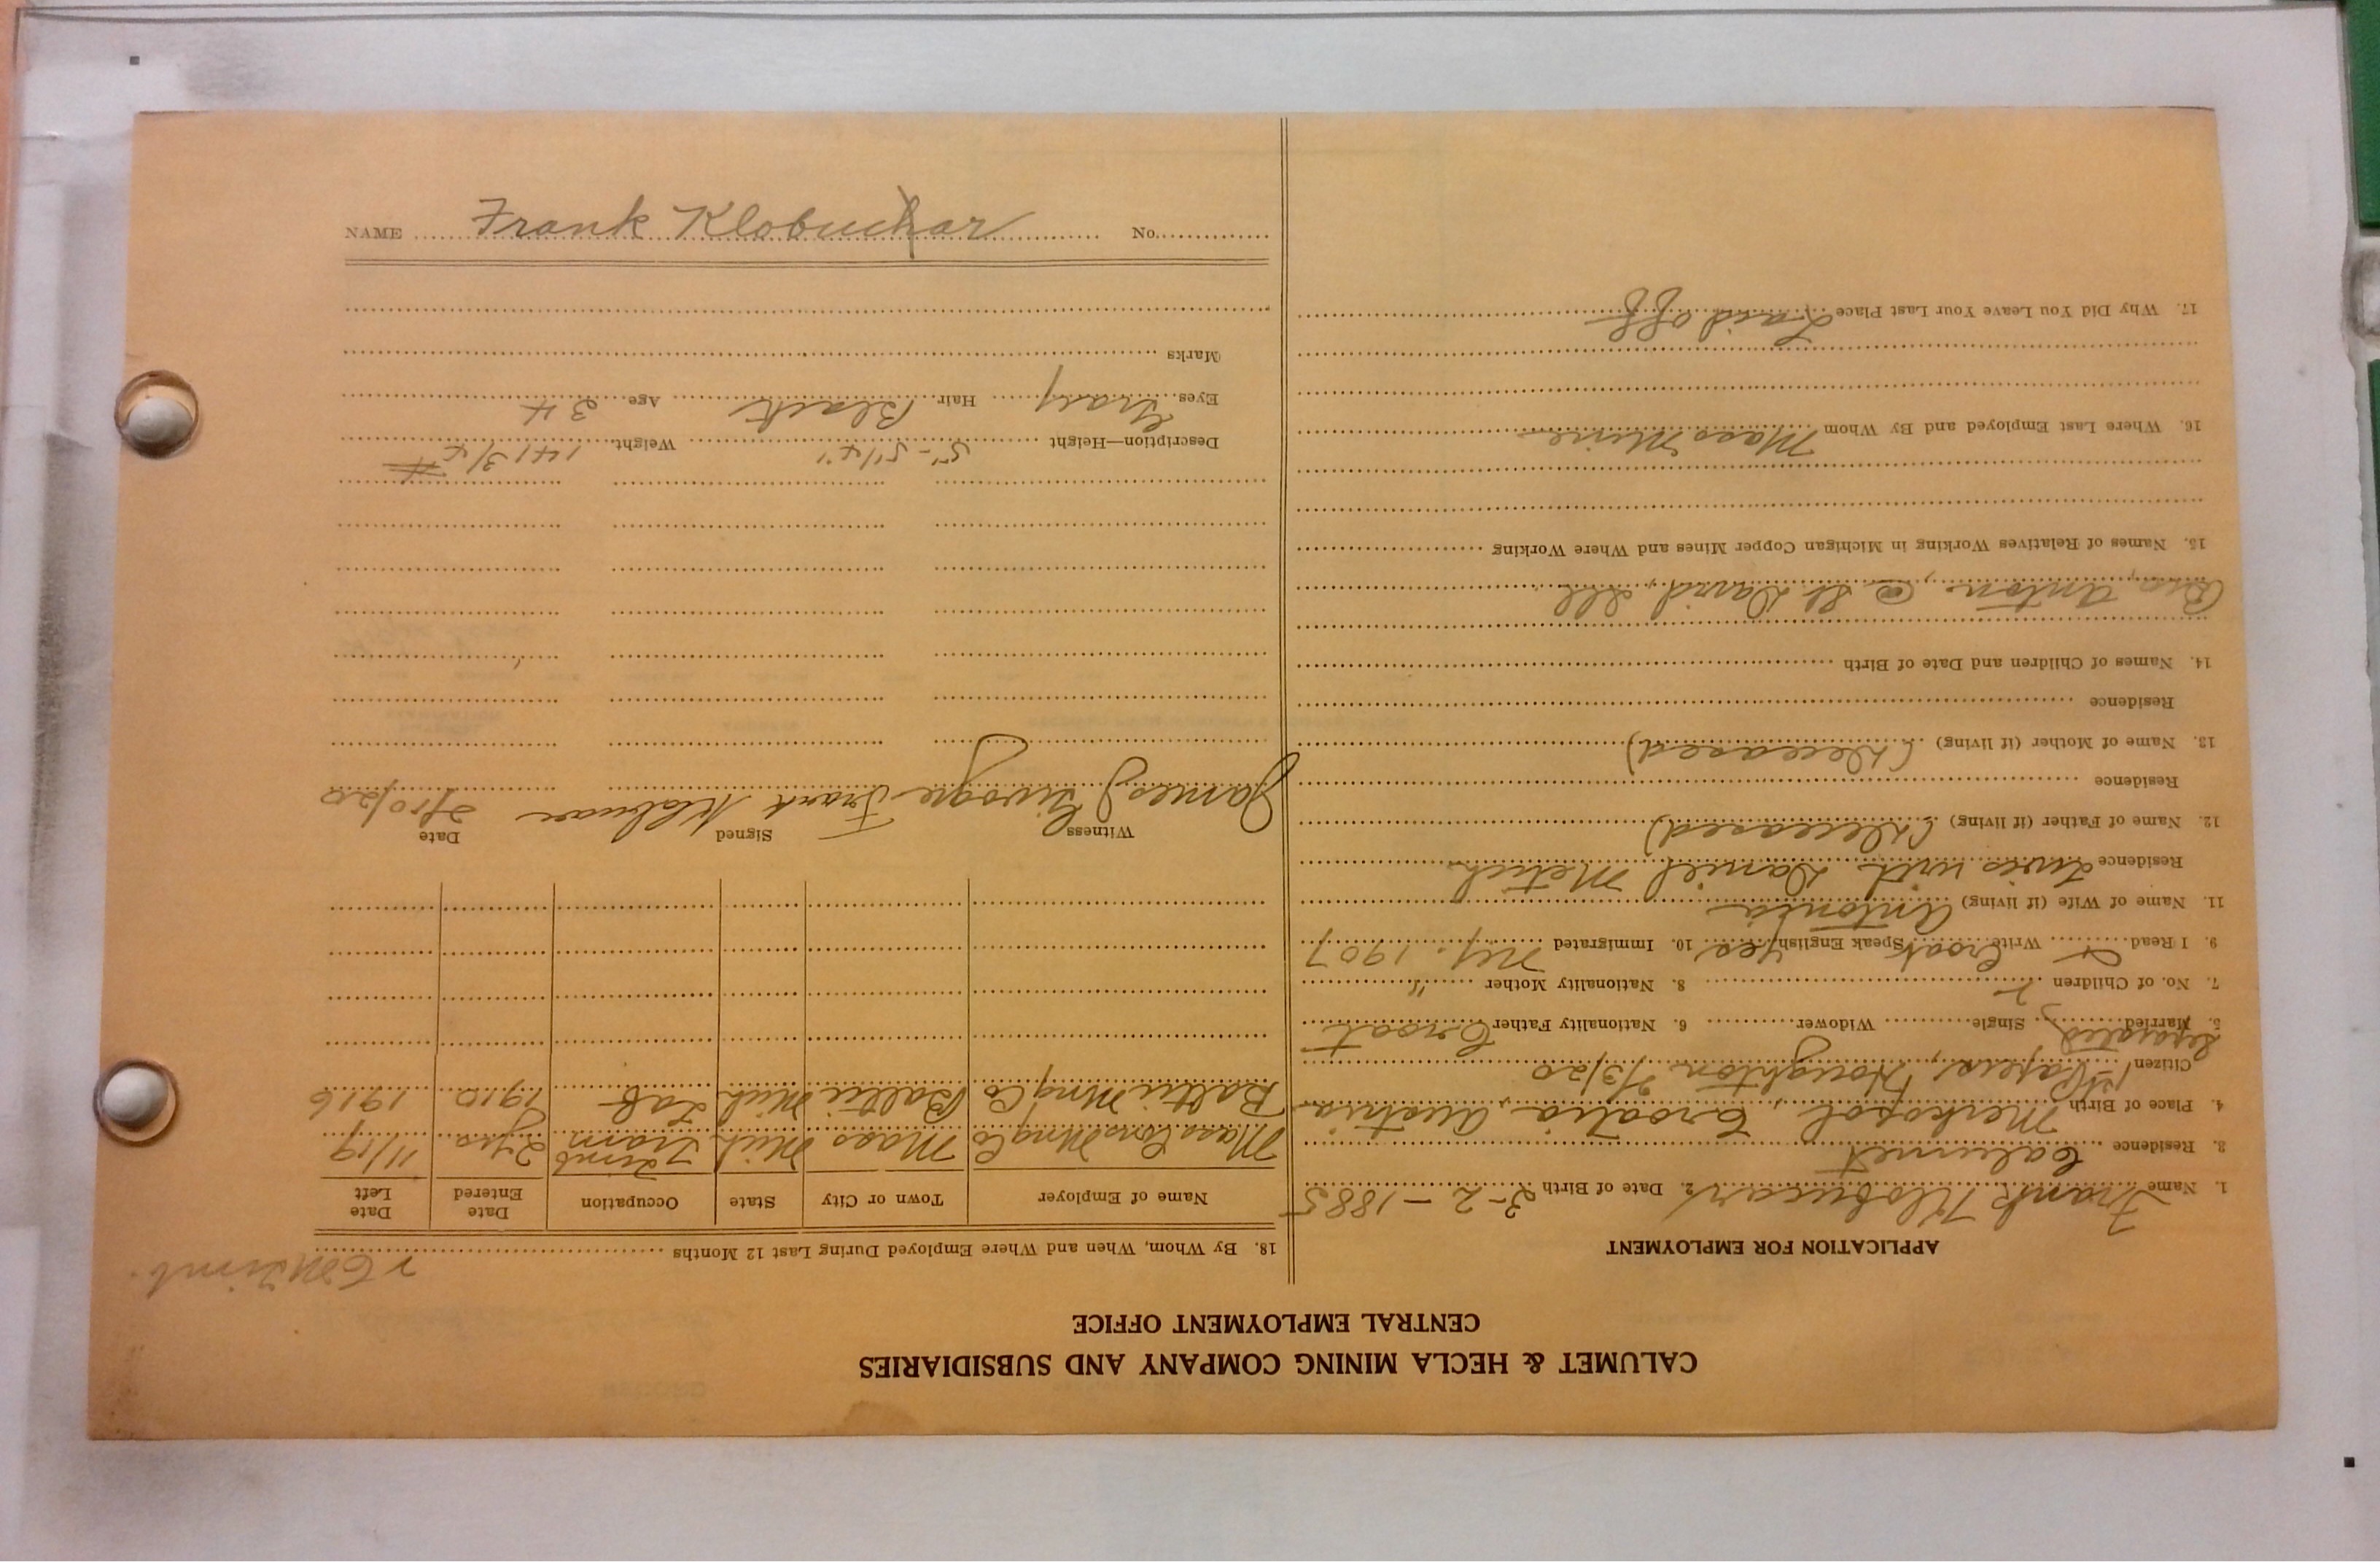 CALUMET & HECLA MINING COMPANY AND SUBSIDIARIES
CENTRAL EMPLOYMENT OFFICE
APPLICATION FOR EMPLOYMENT
1. Name Frank Klobucar 2. Date of Birth 3-2-1885
3. Residence Calumet
4. Place of Birth Merkopol, Croatia, Austria
Citizen 1st Papers, Houghton 2/3/20
Separated
5. Married Single Widower 6. Nationality Father Croat
7. No. of Children 2 8. Nationality Mother "
9. I Read & Write Croat Speak English Yes 10. Immigrated N.Y. 1907
11. Name of Wife (if living) Antonia
Residence Lives with Daniel Metich
12. Name of Father (if living) (Deceased)
Residence
13. Name of Mother (if living) (Deceased)
Residence
14. Names of Children and Date of Birth
Bro Anton, @ St David, Ill
15. Names of Relatives Working in Michigan Copper Mines and Where Working
16. Where Last Employed and By Whom Mass Mine
17. Why Did You Leave Your Last Place Laid off
18. By Whom, When and Where Employed During Last 12 Months
Name of Employer Town or City State Occupation Date Entered Date Left
Mass Cons Mng Co Mass Mich Timb Tram 2 yrs 11/19
Baltic Mng Co Baltic Mich Lab 1910 1916
Witness Signed Date
James Frank Klobucar 2/10/20
Description—Height 5'-5 1/4" Weight 141 3/4 #
Eyes Gray Hair Black Age 34
Marks
NAME Frank Klobuchar No.